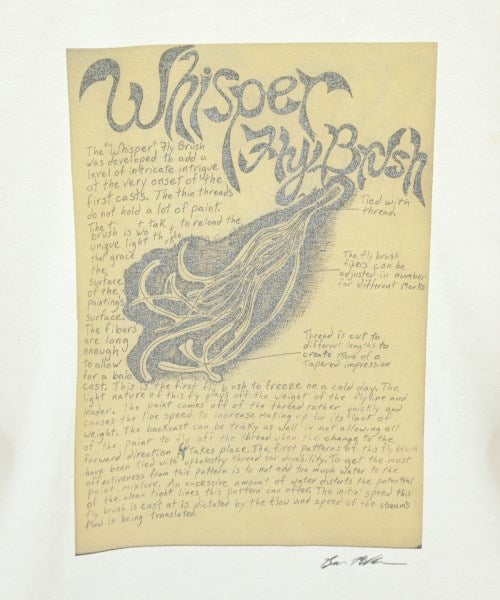 Whisper
Fly Brush
The "Whisper" Fly Brush
was developed to add a
level of intricate intrigue
at the very onset of the
first casts. The thin threads
do not hold a lot of paint.
The t t tak to reload the
brush is wo t t
unique light th
that grace
the
surface
of the
paintings
surface.
The fibers
are long
enough
to allow
for a bale
Tied with
thread.
The fly brush
fibers can be
adjusted in number
for different Marks
Thread is cut to
different lengths to
create more of a
Tapered impression
cast. This is the first fly b ush to freeze on a cold day. The
light nature of this fly plays off the weight of the flyline and
leader. The paint comes off of the thread rather quickly and
causes the line speed to increase making up for its lack of
weight. The backcast can be tricky as well in not allowing all
of the paint to fly off the thread when the change to the
forward direction takes place. The first patterns of this fly brush
have been tied with upholstry thread for durability. To get the most
effectiveness from this pattern is to not add too much water to the
paint mixture. An excessive amount of water distorts the potential
of the clean tight lines this pattern can offer. The initial speed this
fly brush is cast at is dictated by the flow and speed of the streams
flow is being translated.